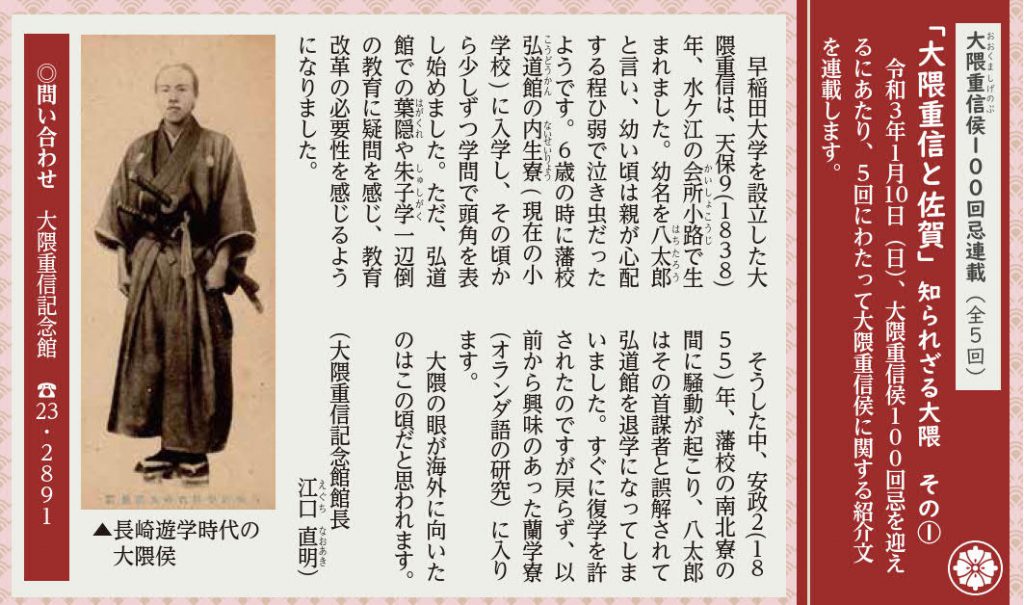 大隈重信侯100回忌連載（全5回）
おおくましげのぶ
「大隈重信と佐賀」 知られざる大隈 その①
令和3年1月10日（日）、大隈重信侯100回忌を迎え
るにあたり、5回にわたって大隈重信侯に関する紹介文
を連載します。
早稲田大学を設立した大
隈重信は、天保9(1838)
年、水ケ江の会所小路で生
かいしょこうじ
まれました。幼名を八太郎
はちたろう
と言い、幼い頃は親が心配
する程ひ弱で泣き虫だった
ようです。6歳の時に藩校
弘道館の内生寮(現在の小
こうどうかん ないせいりょう
学校)に入学し、その頃か
ら少しずつ学問で頭角を表
し始めました。ただ、弘道
館での葉隠や朱子学一辺倒
はがくれ しゅしがく
の教育に疑問を感じ、教育
改革の必要性を感じるよう
になりました。
そうした中、安政2(18
55)年、藩校の南北寮の
間に騒動が起こり、八太郎
はその首謀者と誤解されて
弘道館を退学になってしま
いました。すぐに復学を許
されたのですが戻らず、以
前から興味のあった蘭学寮
(オランダ語の研究)に入り
ます。
大隈の眼が海外に向いた
のはこの頃だと思われます。
(大隈重信記念館館長
江口 直明)
えぐち なおあき
▲長崎遊学時代の
大隈侯
◎問い合わせ 大隈重信記念館 ☎23・2891